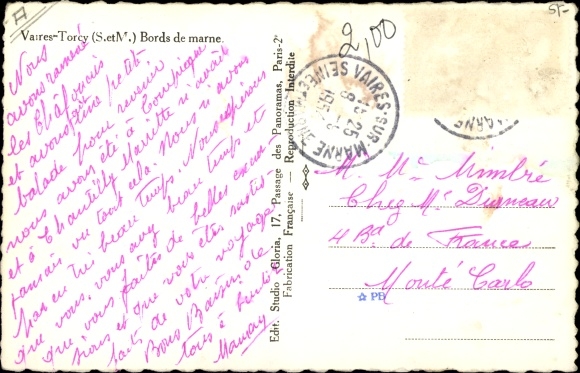 Vaires-Torcy (S.etM.) Bords de marne.
Nous
avons ramené
les
et avons fait petit
balade pour revenir
nous avons été à Compiègne
et à Chantilly Mariette n'avait
jamais vu tout cela. Nous n'avons
pas eu très beau temps. Nous espérons
que vous, vous avez beau temps et
que vous faites de belles excur
sions et que vous êtes satis
faits de votre voyage
Bons Baisers de
tous à
Edit. Studio Gloria, 17, Passage des Panoramas, Paris-2e
Fabrication Française — Reproduction Interdite
2,00
5F-
VAIRES-SUR-MARNE
SEINE
25
MARNE
M. Mme
Chez Mr
4 Bd. de France
Monté Carlo
PB